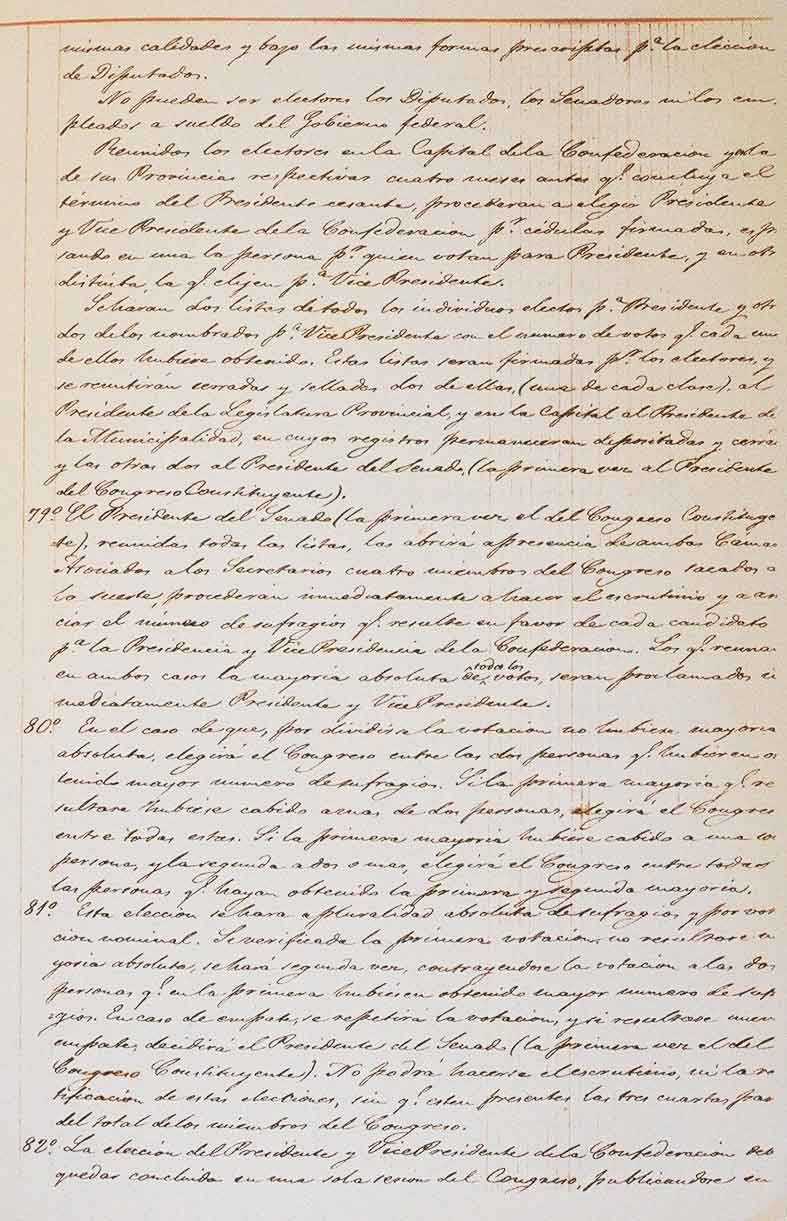 mismas calidades y bajo las mismas formas prescriptas p.ª la eleccion
de Diputados.
No pueden ser electores los Diputados, los Senadores ni los em-
pleados a sueldo del Gobierno federal.
Reunidos los electores en la Capital de la Confederacion y en la
de sus Provincias respectivas cuatro meses antes q.e concluya el
término del Presidente cesante, procederan a elegir Presidente
y Vice Presidente de la Confederacion p.r cédulas firmadas, espr
sando en una la persona p.r quien votan para Presidente, y en otr
distinta, la q.e elijen p.ª Vice Presidente.
Se haran dos listas de todos los individuos electos p.ª Presidente y otr
dos de los nombrados p.ª Vice Presidente con el numero de votos q.e cada uno
de ellos hubiere obtenido. Estas listas seran firmadas p.r los electores, y
se remitirán cerradas y selladas dos de ellas, (una de cada clase), al
Presidente de la Legislatura Provincial, y en la Capital al Presidente de
la Municipalidad, en cuyos registros permaneceran depositadas y cerra
y las otras dos al Presidente del Senado, (la primera vez al Presidente
del Congreso Constituyente).
79º El Presidente del Senado (la primera vez el del Congreso Constituye
te), reunidas todas las listas, las abrirá a presencia de ambas Cáma
Asociados a los Secretarios cuatro miembros del Congreso sacados a
la suerte, procederán inmediatamente a hacer el escrutinio y a an
ciar el número de sufragios q.e resulte en favor de cada candidato
p.ª la Presidencia y Vice Presidencia de la Confederacion. Los q.e reuna
en ambos casos la mayoria absoluta de todos los votos, seran proclamados i
mediatamente Presidente y Vice Presidente.
80º En el caso de que, por dividirse la votacion no hubiere mayoria
absoluta, elegirá el Congreso entre las dos personas q.e hubieren o
tenido mayor numero de sufragios. Si la primera mayoria q.e re
sultare hubiese cabido a mas de dos personas, elegirá el Congres
entre todas estas. Si la primera mayoria hubiere cabido a una so
persona, y la segunda a dos o mas, elegirá el Congreso entre todas
las personas q.e hayan obtenido la primera y segunda mayoria.
81º Esta eleccion se hara a pluralidad absoluta de sufragios y por vot
cion nominal. Si verificada la primera votacion, no resultare m
yoria absoluta, se hará segunda vez, contrayendose la votacion a las dos
personas q.e en la primera hubiesen obtenido mayor numero de suf
gios. En caso de empate, se repetirá la votacion, y si resultase nuev
empate, decidirá el Presidente del Senado (la primera vez el del
Congreso Constituyente). No podrá hacerse el escrutinio, ni la re
tificacion de estas elecciones, sin q.e esten presentes las tres cuartas par
del total de los miembros del Congreso.
82º La eleccion del Presidente y Vice Presidente de la Confederacion deb
quedar concluida en una sola sesion del Congreso, publicandose en